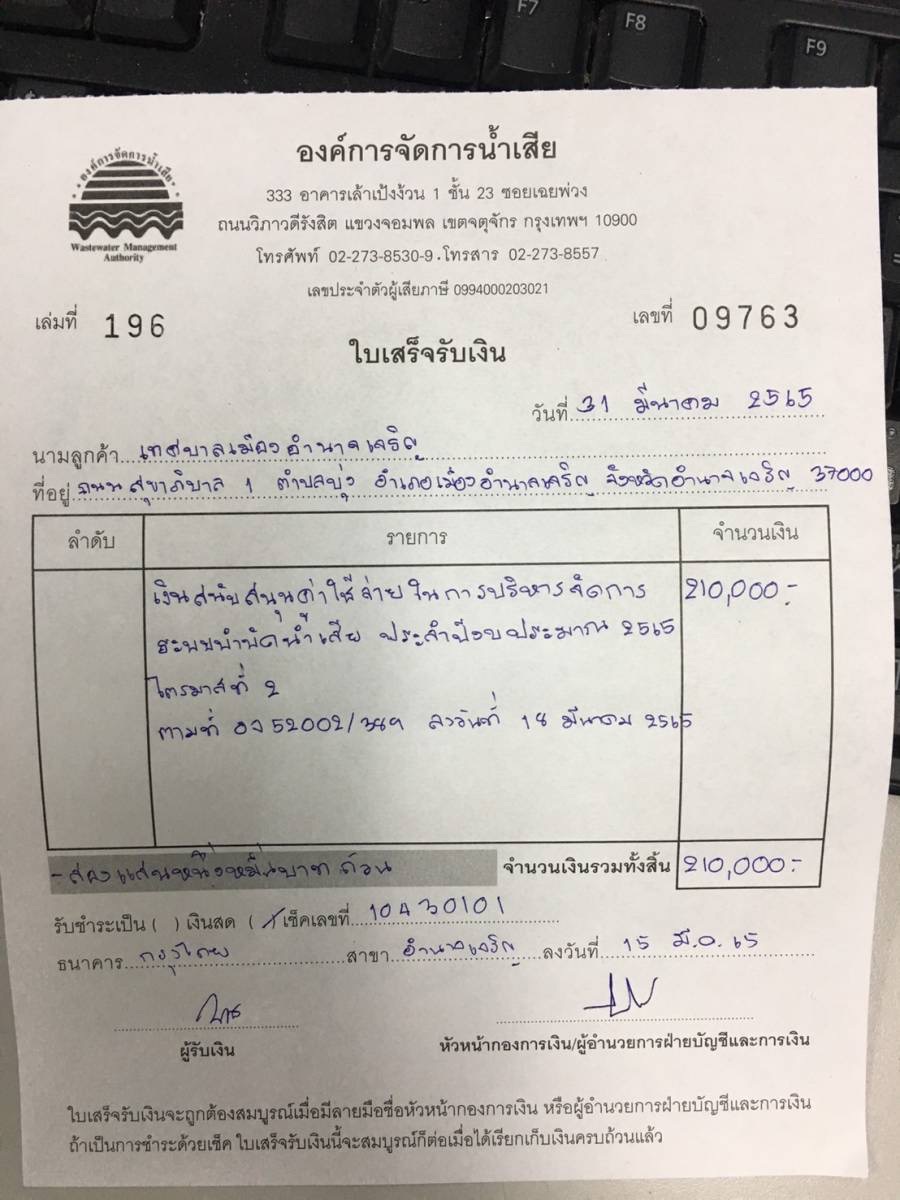 F7
F8
F9
องค์การจัดการน้ำเสีย
องค์การจัดการน้ำเสีย
Wastewater Management
Authority
333 อาคารเล้าเป้งง้วน 1 ชั้น 23 ซอยเฉยพ่วง
ถนนวิภาวดีรังสิต แขวงจอมพล เขตจตุจักร กรุงเทพฯ 10900
โทรศัพท์ 02-273-8530-9 . โทรสาร 02-273-8557
เลขประจำตัวผู้เสียภาษี 0994000203021
เล่มที่ 196 เลขที่ 09763
ใบเสร็จรับเงิน
วันที่ 31 มีนาคม 2565
นามลูกค้า เทศบาลเมืองอำนาจเจริญ
ที่อยู่ ถนนสุขาภิบาล 1 ตำบลบุ่ง อำเภอเมืองอำนาจเจริญ จังหวัดอำนาจเจริญ 37000
ลำดับ รายการ จำนวนเงิน
เงินสนับสนุนค่าใช้จ่ายในการบริหารจัดการ 210,000.-
ระบบบำบัดน้ำเสีย ประจำปีงบประมาณ 2565
ไตรมาสที่ 2
ตามที่ อจ 52002/389 ลงวันที่ 18 มีนาคม 2565
-สองแสนหนึ่งหมื่นบาทถ้วน จำนวนเงินรวมทั้งสิ้น 210,000.-
รับชำระเป็น ( ) เงินสด (/) เช็คเลขที่ 10430101
ธนาคาร กรุงไทย สาขา อำนาจเจริญ ลงวันที่ 15 มี.ค. 65
ผู้รับเงิน หัวหน้ากองการเงิน/ผู้อำนวยการฝ่ายบัญชีและการเงิน
ใบเสร็จรับเงินจะถูกต้องสมบูรณ์เมื่อมีลายมือชื่อหัวหน้ากองการเงิน หรือผู้อำนวยการฝ่ายบัญชีและการเงิน
ถ้าเป็นการชำระด้วยเช็ค ใบเสร็จรับเงินนี้จะสมบูรณ์ก็ต่อเมื่อได้เรียกเก็บเงินครบถ้วนแล้ว